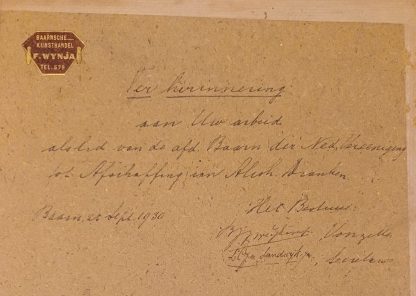 BAARNSCHE
KUNSTHANDEL
F. WYNJA
TEL. 576
Ter herinnering
aan Uw arbeid
als lid van de afd. Baarn der Ned. Vereeniging
tot Afschaffing van Alcoh. Dranken.
Baarn, Sept. 1930
Het Bestuur:
Voorzitter
Secretaris